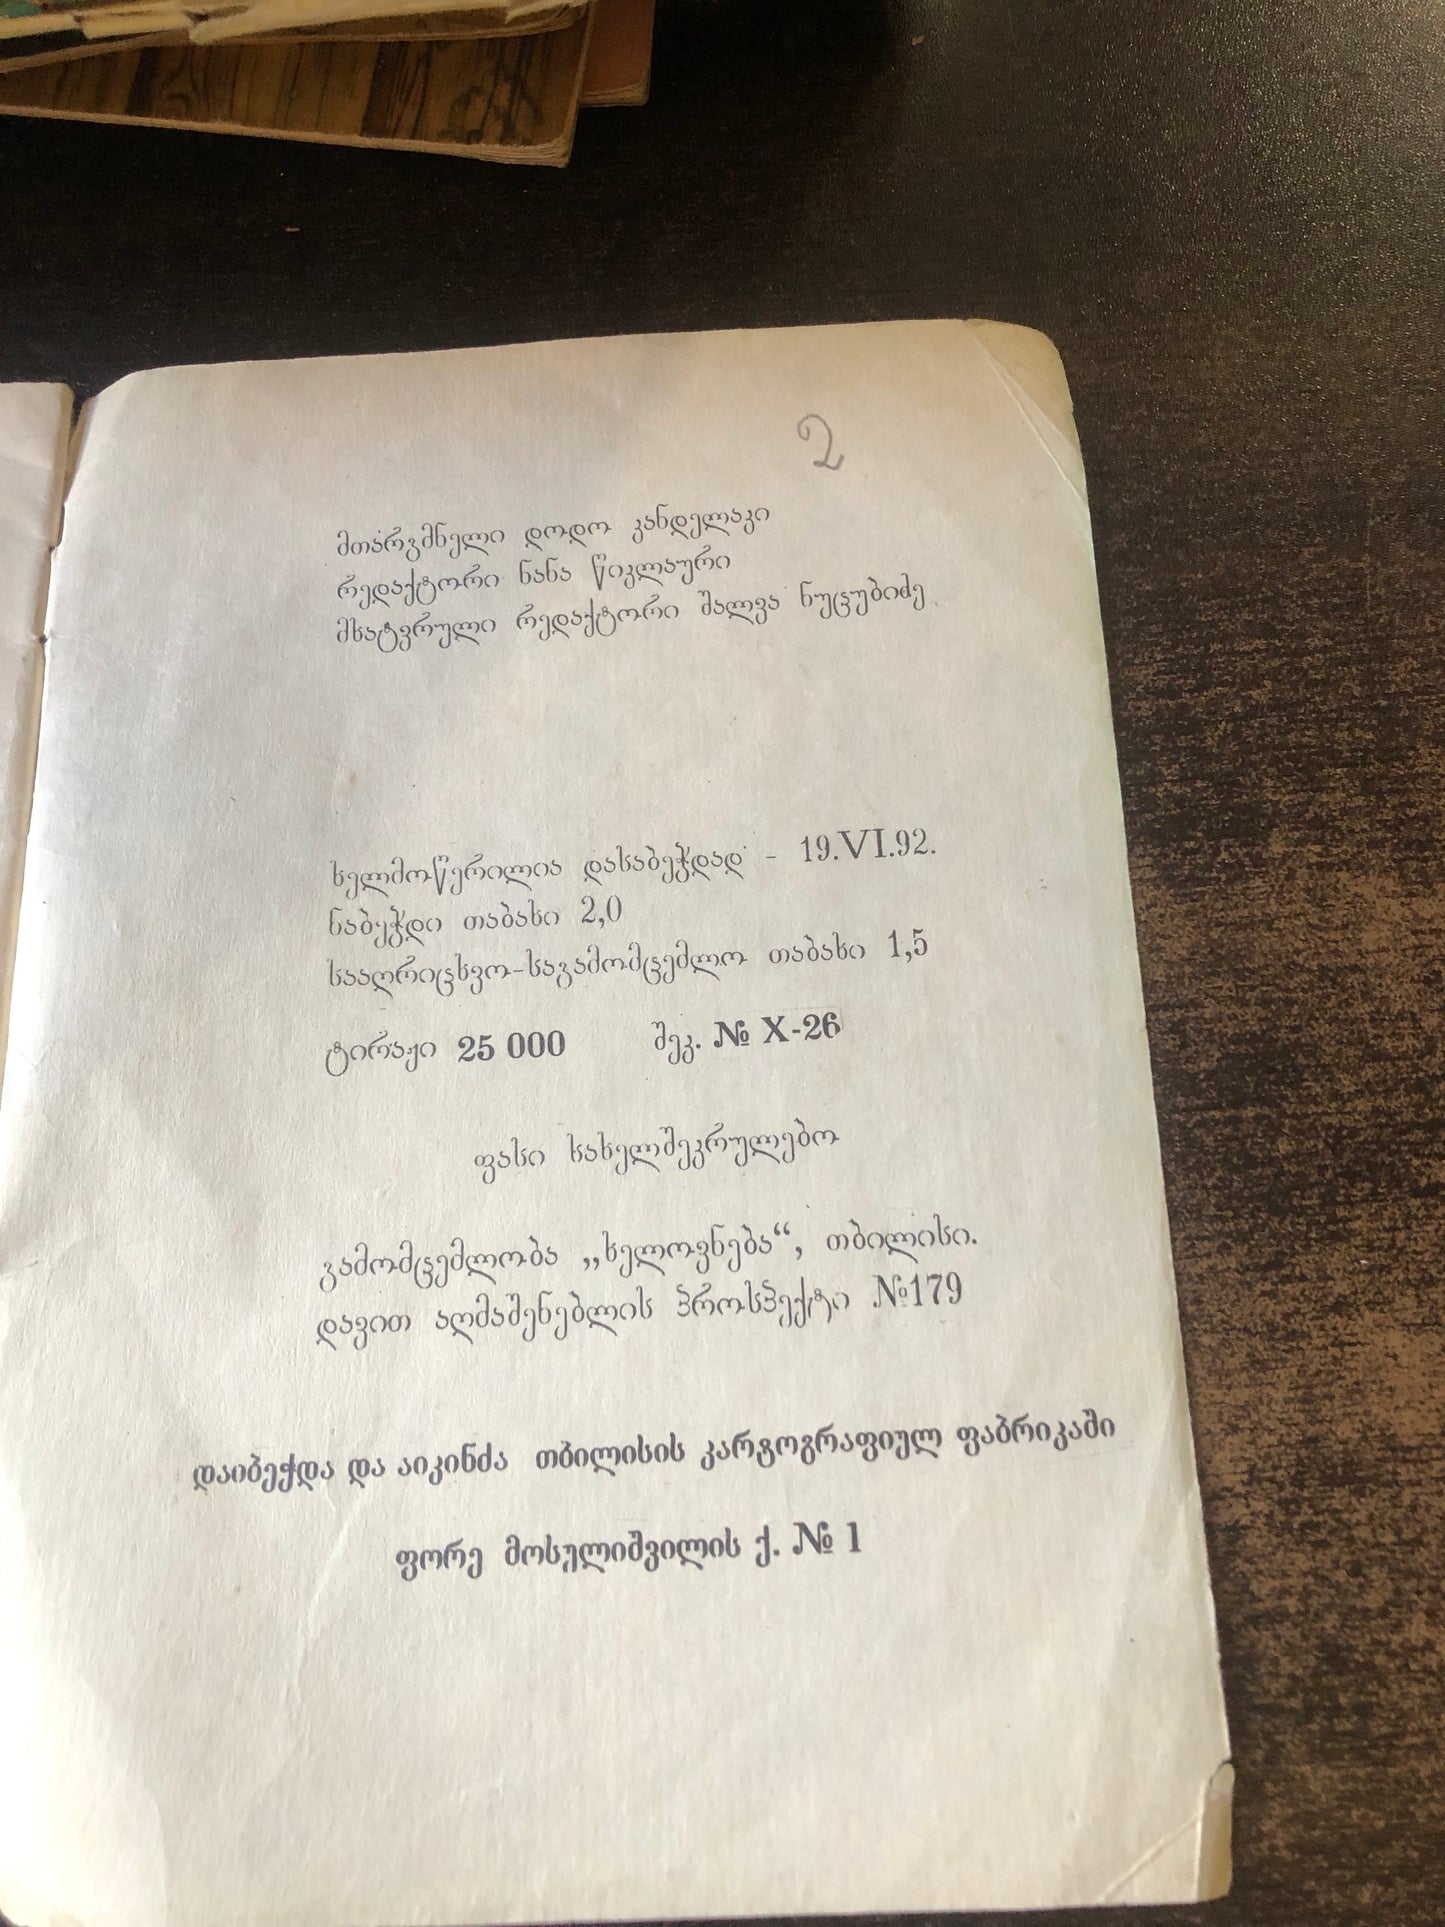 2
მთარგმნელი დოდო კანდელაკი
რედაქტორი ნანა წიკლაური
მხატვრული რედაქტორი შალვა ნუცუბიძე
ხელმოწერილია დასაბეჭდად - 19.VI.92.
ნაბეჭდი თაბახი 2,0
სააღრიცხვო-საგამომცემლო თაბახი 1,5
ტირაჟი 25 000 შეკ. № X-26
ფასი სახელშეკრულებო
გამომცემლობა „ხელოვნება“, თბილისი.
დავით აღმაშენებლის პროსპექტი №179
დაიბეჭდა და აიკინძა თბილისის კარტოგრაფიულ ფაბრიკაში
ფორე მოსულიშვილის ქ. № 1